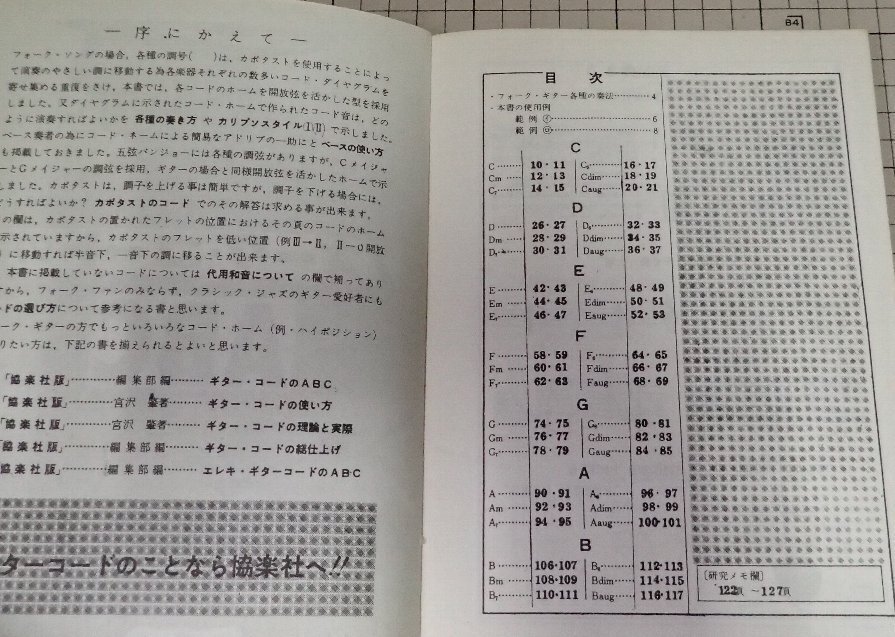 — 序にかえて —
フォーク・ソングの場合，各種の調号( )は，カポタストを使用することによっ
て演奏のやさしい調に移動する為各楽器それぞれの数多いコード・ダイヤグラムを
寄せ集める重復をさけ，本書では，各コードのホームを開放弦を活かした型を採用
しました。又ダイヤグラムに示されたコード・ホームで作られたコード音は，どの
ように演奏すればよいかを 各種の奏き方 や カリプソスタイル(Ⅰ)(Ⅱ) で示しました。
ベース奏者の為にコード・ネームによる簡易なアドリブの一助にと ベースの使い方
も掲載しておきました。五弦バンジョーには各種の調弦がありますが，Cメイジャ
ーとGメイジャーの調弦を採用，ギターの場合と同様開放弦を活かしたホームで示
しました。カポタストは，調子を上げる事は簡単ですが，調子を下げる場合には，
どうすればよいか？ カポタストのコード でのその解答は求める事が出来ます。
の欄は，カポタストの置かれたフレットの位置におけるその頁のコードのホーム
示されていますから，カポタストのフレットを低い位置（例Ⅲ→Ⅱ，Ⅱ→0開放
）に移動すれば半音下，一音下の調に移ることが出来ます。
本書に掲載していないコードについては 代用和音について の欄で補ってあり
すから，フォーク・ファンのみならず，クラシック・ジャズのギター愛好者にも
ードの選び方について参考になる書と思います。
ーク・ギターの方でもっといろいろなコード・ホーム（例・ハイポジション）
りたい方は，下記の書を揃えられるとよいと思います。
「協楽社版」…………編集部編………ギター・コードのABC
「協楽社版」…………宮沢 肇著………ギター・コードの使い方
「協楽社版」…………宮沢 肇著………ギター・コードの理論と実際
「協楽社版」…………編集部編………ギター・コードの総仕上げ
「協楽社版」…………編集部編………エレキ・ギターコードのABC
ターコードのことなら協楽社へ!!
B4
目次
・フォーク・ギター各種の奏法…………4
・本書の使用例
範例①……………………6
範例②……………………8
C
C……… 10・11 C₆…… 16・17
Cm…… 12・13 Cdim… 18・19
C₇……… 14・15 Caug… 20・21
D
D……… 26・27 D₆…… 32・33
Dm…… 28・29 Ddim… 34・35
D₇……… 30・31 Daug… 36・37
E
E……… 42・43 E₆…… 48・49
Em…… 44・45 Edim… 50・51
E₇……… 46・47 Eaug… 52・53
F
F……… 58・59 F₆…… 64・65
Fm…… 60・61 Fdim… 66・67
F₇……… 62・63 Faug… 68・69
G
G……… 74・75 G₆…… 80・81
Gm…… 76・77 Gdim… 82・83
G₇……… 78・79 Gaug… 84・85
A
A……… 90・91 A₆…… 96・97
Am…… 92・93 Adim… 98・99
A₇……… 94・95 Aaug… 100・101
B
B……… 106・107 B₆…… 112・113
Bm…… 108・109 Bdim… 114・115
B₇……… 110・111 Baug… 116・117
〔研究メモ欄〕
122頁 〜127頁